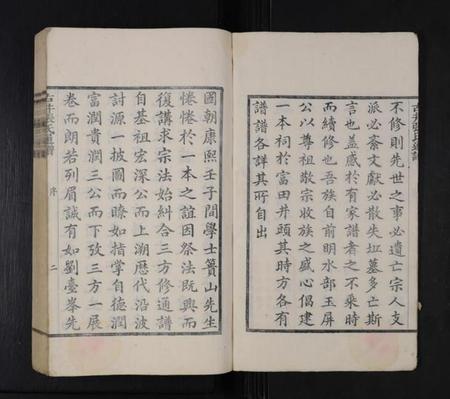 不修則先世之事必遺亡宗人支
派必紊文獻必散失坵墓多亡斯
言也蓋感於有家譜者之不乘時
而續修也吾族自前明水部玉屏
公以尊祖敬宗收族之盛心倡建
一本祠於富田井頭其時方各有
譜譜各詳其所自出
國朝康熙壬子間學士簣山先生
惓惓於一本之誼因祭法既興而
復講求宗法始糾合三方修通譜
自基祖宏深公而上溯歷代沿波
討源一披圖而瞭如指掌自德潤
富潤貴潤三公而下攷三方一展
卷而朗若列眉誠有如劉臺峯先
序
二